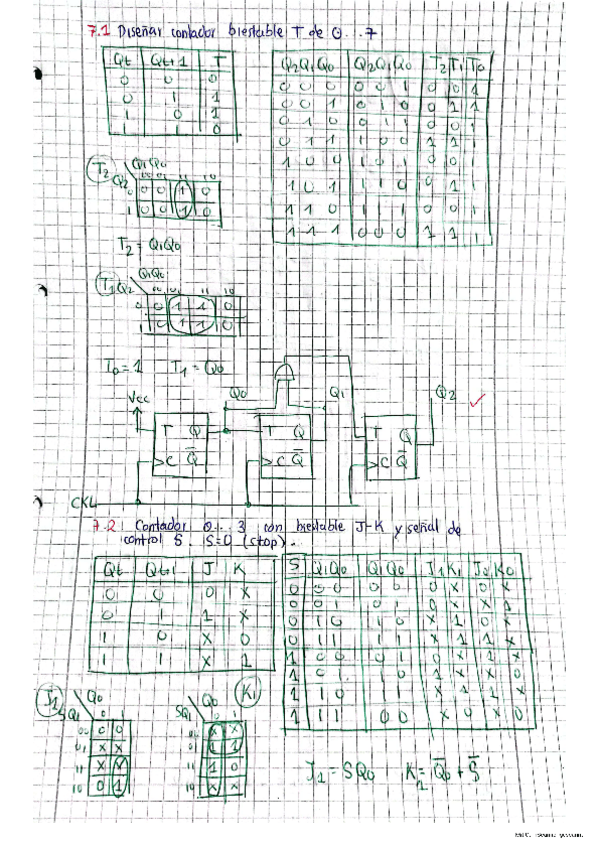 7.1 Diseñar contador biestable T de 0...7
Qt Qt+1 T
0 0 0
0 1 1
1 0 1
1 1 0
Q2Q1Q0 Q2Q1Q0 T2 T1 T0
0 0 0 0 0 1 0 0 1
0 0 1 0 1 0 0 1 1
0 1 0 0 1 1 0 0 1
0 1 1 1 0 0 1 1 1
1 0 0 1 0 1 0 0 1
1 0 1 1 1 0 0 1 1
1 1 0 1 1 1 0 0 1
1 1 1 0 0 0 1 1 1
T2 Q1Q0
Q2 00 01 11 10
0 0 0 1 0
1 0 0 1 0
T2 = Q1Q0
Q1Q0
T1 Q2 00 01 11 10
0 0 1 1 0
1 0 1 1 0
T0=1 T1=Q0
Vcc Q0 Q1 Q2
T Q T Q T Q
C Q̅ C Q̅ C Q̅
CKL
7.2 Contador 0...3 con biestable J-K y señal de
control S. S=0 (stop).
Qt Qt+1 J K
0 0 0 X
0 1 1 X
1 0 X 0
1 1 X 1
S Q1Q0 Q1Q0 J1 K1 J2 K0
0 0 0 0 0 0 X 0 X
0 0 1 0 1 0 X X 1
0 1 0 1 0 X 1 0 X
0 1 1 1 1 X 1 1 X
1 0 0 0 1 0 X 1 X
1 0 1 1 0 1 X X 0
1 1 0 1 1 X 1 1 X
1 1 1 0 0 X 0 X 0
J1 Q0
SQ1 0 1
00 0 0
01 X X
11 X X
10 0 1
Q0 K1
SQ1 0 1
00 X X
01 1 1
11 1 0
10 X X
J1 = SQ0 K1 = Q̅0 + S̅